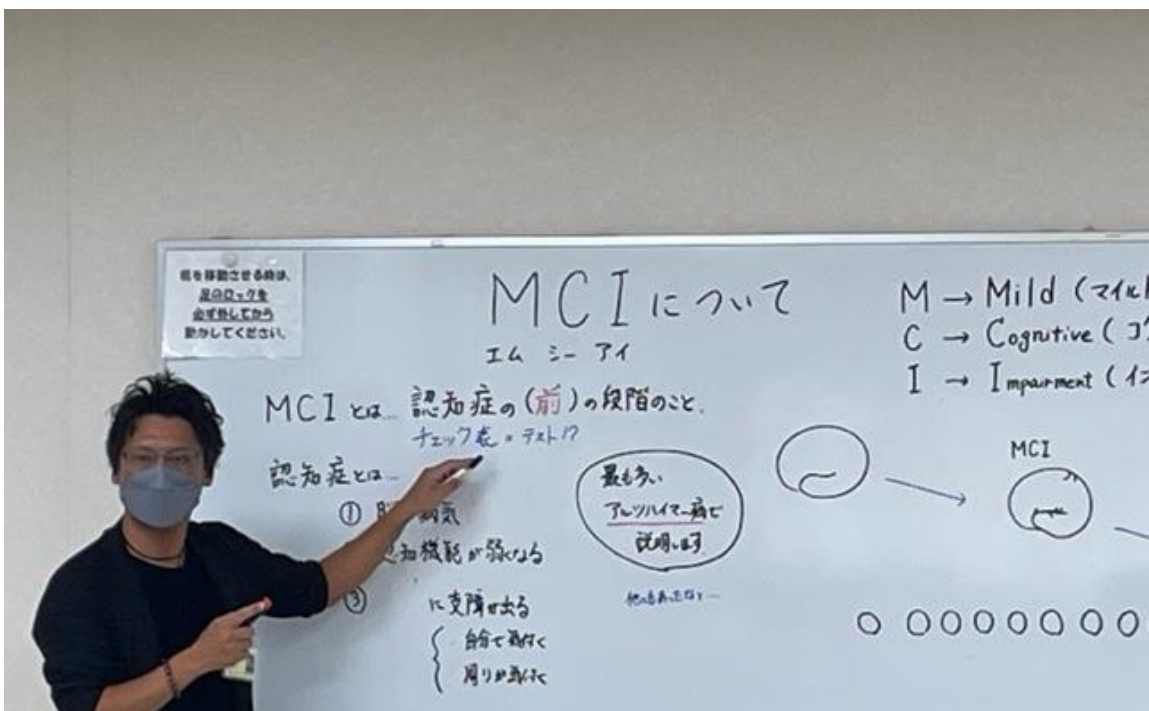 机を移動させる時は、
足のロックを
必ず外してから
動かしてください。
MCIについて
エム シー アイ
M → Mild (マイルド
C → Cognitive (コグ
I → Impairment (イン
MCIとは… 認知症の(前)の段階のこと。
チェック表・テスト!?
認知症とは…
① 病気
認知機能が弱くなる
③ に支障が出る
自分で気付く
周りが気付く
最も多い
アルツハイマー病で
説明します
MCI